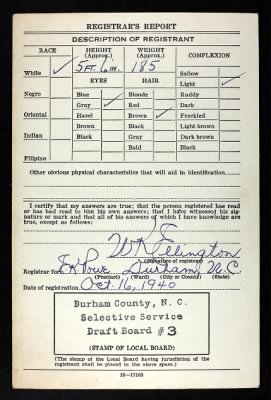 REGISTRAR'S REPORT
DESCRIPTION OF REGISTRANT
RACE HEIGHT (Approx.) WEIGHT (Approx.) COMPLEXION
White ✓ 5 FT. 6 in. 185 Sallow
EYES HAIR Light ✓
Negro Blue Blonde Ruddy
Gray ✓ Red Dark
Oriental Hazel Brown ✓ Freckled
Brown Black Light brown
Indian Black Gray Dark brown
Bald Black
Filipino
Other obvious physical characteristics that will aid in identification
I certify that my answers are true; that the person registered has read or has had read to him his own answers; that I have witnessed his signature or mark and that all of his answers of which I have knowledge are true, except as follows:
Ellington
Registrar for Durham, N.C
(Precinct) (Ward) (City or County) (State)
Date of registration Oct. 16, 1940
Durham County, N. C.
Selective Service
Draft Board #3
(STAMP OF LOCAL BOARD)
(The stamp of the Local Board having jurisdiction of the registrant shall be placed in the above space.)
16-17105